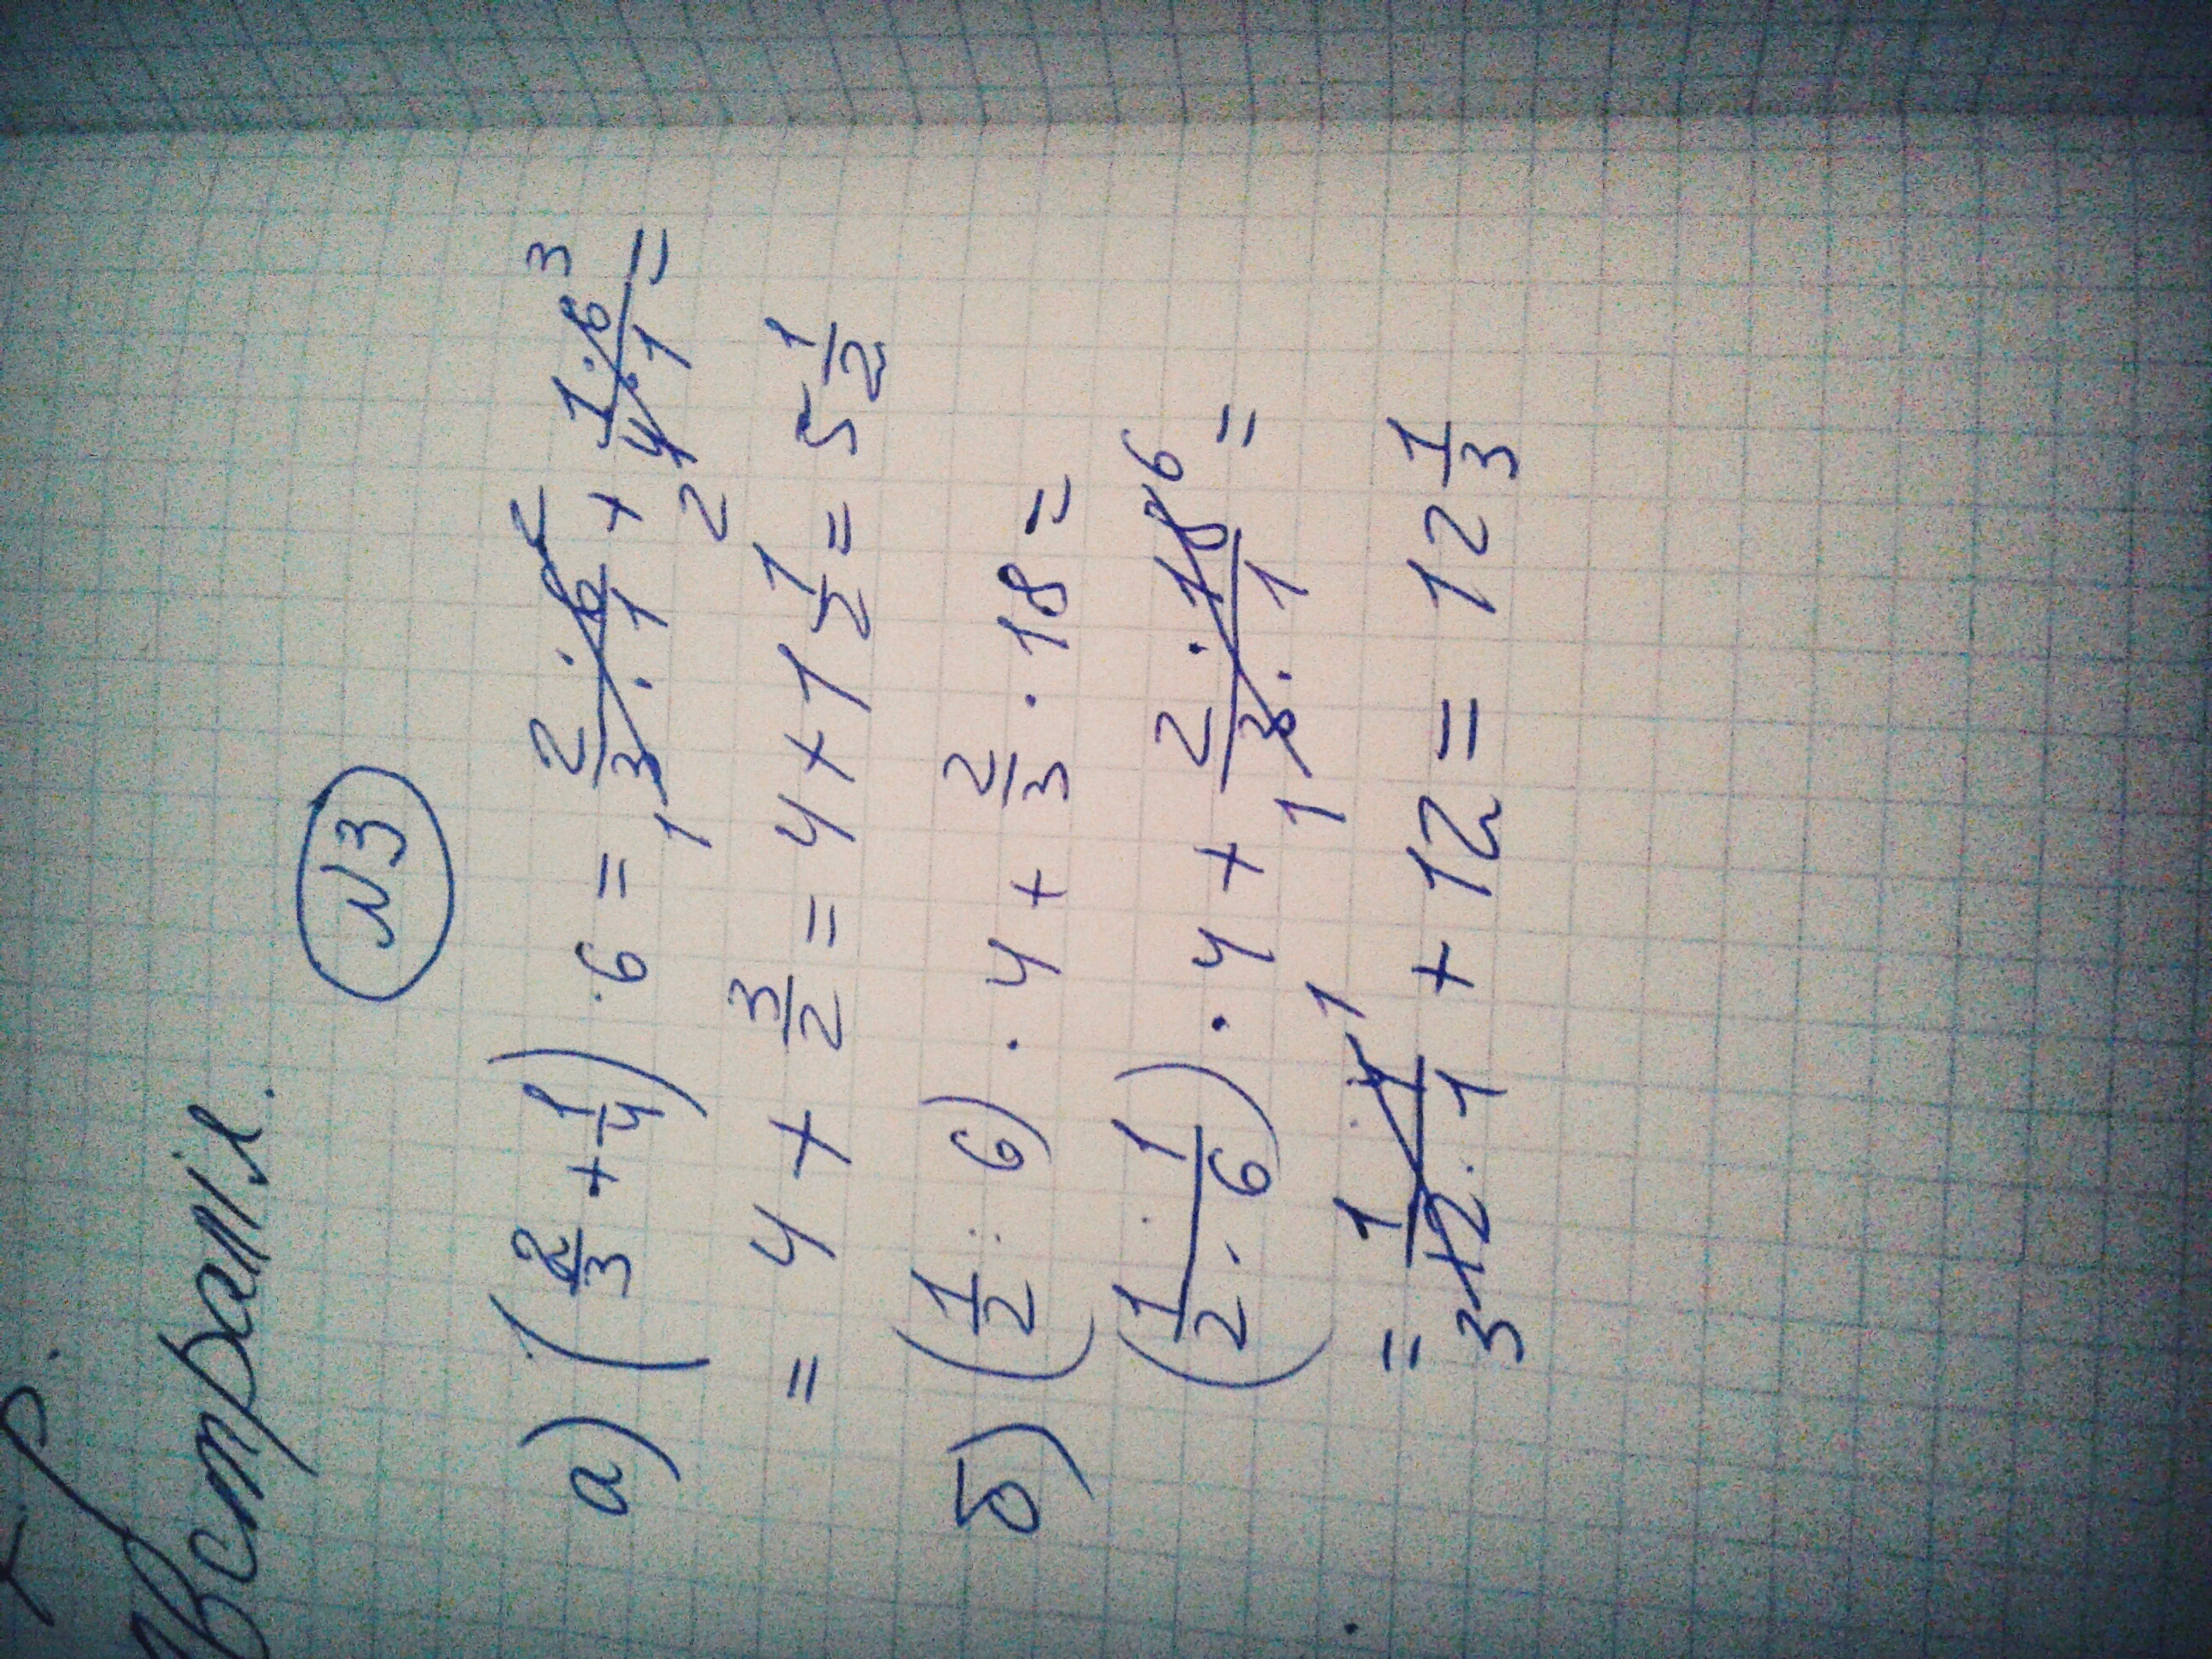 Австралія.
№3
а) (2/3 + 1/4) · 6 = 2 · 6 2 / 1 3 · 1 + 1 · 6 3 / 2 4 · 1 =
= 4 + 3/2 = 4 + 1 1/2 = 5 1/2
б) (1/2 : 6) · 4 + 2/3 · 18 =
(1 · 1 / 2 · 6) · 4 + 2 · 18 6 / 1 3 · 1 =
= 1 · 4 1 / 3 12 · 1 + 12 = 12 1/3